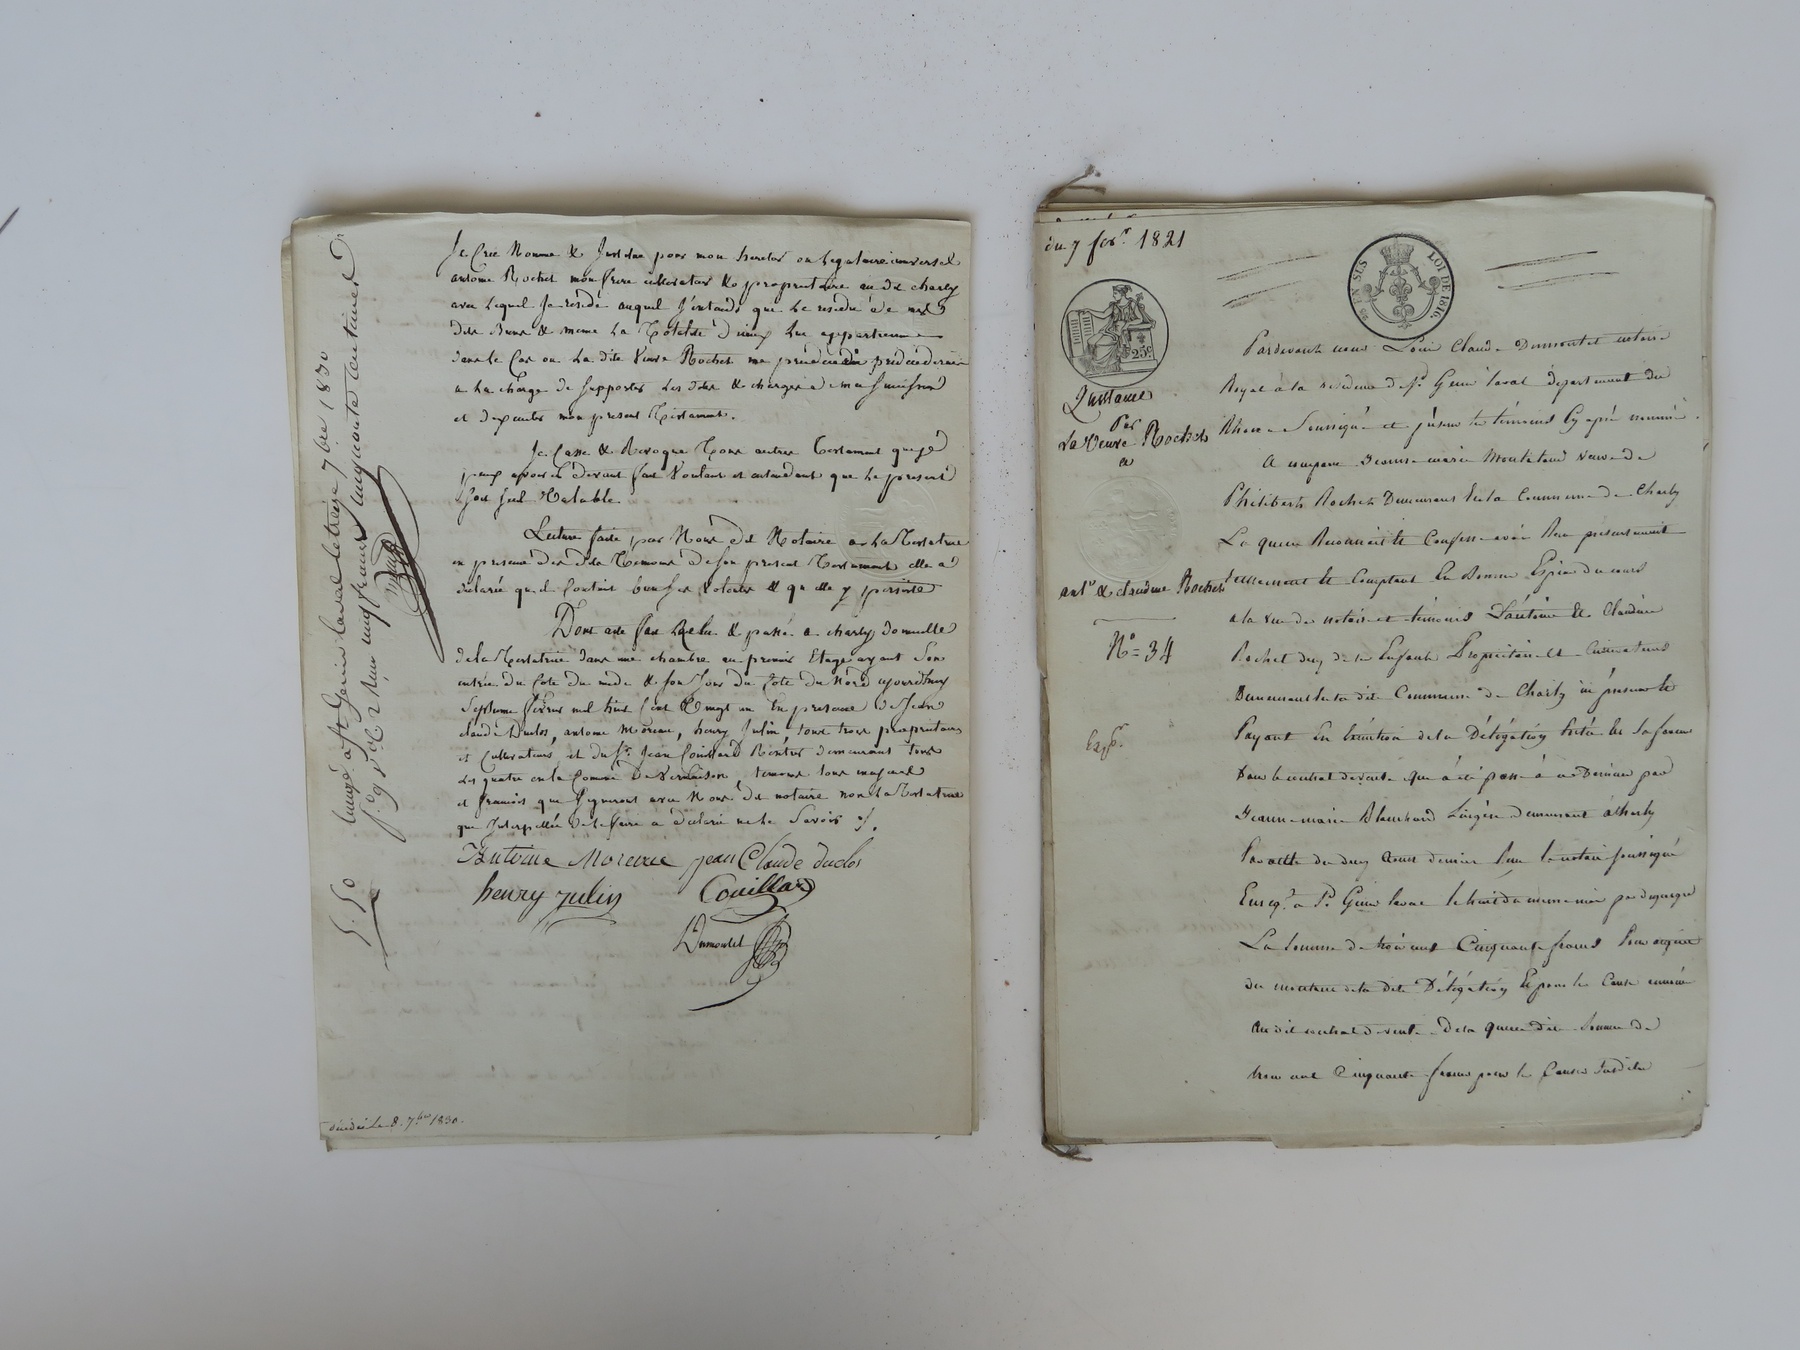 Je Crée Nomme & Institue pour mon heretier ou legataire universel
antoine Rochet mon frere cultivateur & proprietaire au dit charly
avec lequel Je reside auquel J'entends que le residu de mes
dits Biens & meme La Totalité d'iceux lui appartienne
dans le Cas ou La dite Veuve Rochet me prédécéderait
a La charge de supporter Les dettes & charges de ma
et d'executer mon present Testament.
Je Casse & Revoque Tous autres Testament que je
peux avoir cy devant fait Voulant et entendant que le present
soit seul Valable
Lecture faite par Nous dit Notaire a La Testatrice
en presence des dits Temoins de son present Testament elle a
déclarée qu'il Contient bien ses Volontés & qu'elle y persiste
Dont acte fait & passé a charly domicille
de la Testatrice dans une chambre au premier Etage ayant Son
entrée du Coté du midi & son Jour du Coté du Nord aujourdhuy
Septieme fevrier mil huit Cent Vingt un En presence de Jean
claude Duclos, antoine Moreau, henry Julin, tous trois proprietaires
et Cultivateurs, et du Sr. Jean Couillard Rentier demeurant tous
Les quatre en la Commune de Vernaison, temoins tous majeurs
et francois que signeront avec Nous dit notaire non La Testatrice
que Interpellée de le faire a déclaré ne le Savoir ./.
Antoine Moreau jean Claude duclos
henry julin Couillard
Dumortet
Enregé. à St Genis laval le treize 7bre 1830
fo. 9 vo. Ce 2 Reçu cinq francs cinquante centimes
5.50
décédée le 8. 7bre 1830.
du 7 fevr. 1821
25 EN SUS LOI DE 1816.
25c
Quittance
Par
La Veuve Rochet
a
ant. & claudine Rochet
No = 34
Exp.
Pardevant nous Louis Claude Dumortet notaire
Royal à la residence de St. Genis laval département du
Rhone Soussigné et présence des témoins Cy après nommés
A comparu Jeanne marie veuve de
Philibert Rochet Demeurant En la Commune de Charly
La quelle Reconnait et Confesse avoir Reçu présentement
réellement et Comptant En Bonnes Espèces du cours
a la vue du notaire et témoins D'antoine et Claudine
Rochet Propriétaire et Cultivateurs
Demeurant En la dite Commune de Charly
Payant En Exécution de la Délégation
Dans le contrat de vente que a été passé à ce Dernier par
Jeanne marie Blanchard Lingère demeurant à Charly
Par acte du dernier Par le notaire soussigné
Enreg. à St. Genis laval le huit du meme mois par
La Somme de trois cent Cinquante francs Pour
du montant de la dite Délégation Et pour les Causes
Au dit contrat de vente De la quelle dite Somme de
trois cent Cinquante francs pour les Causes Susdites